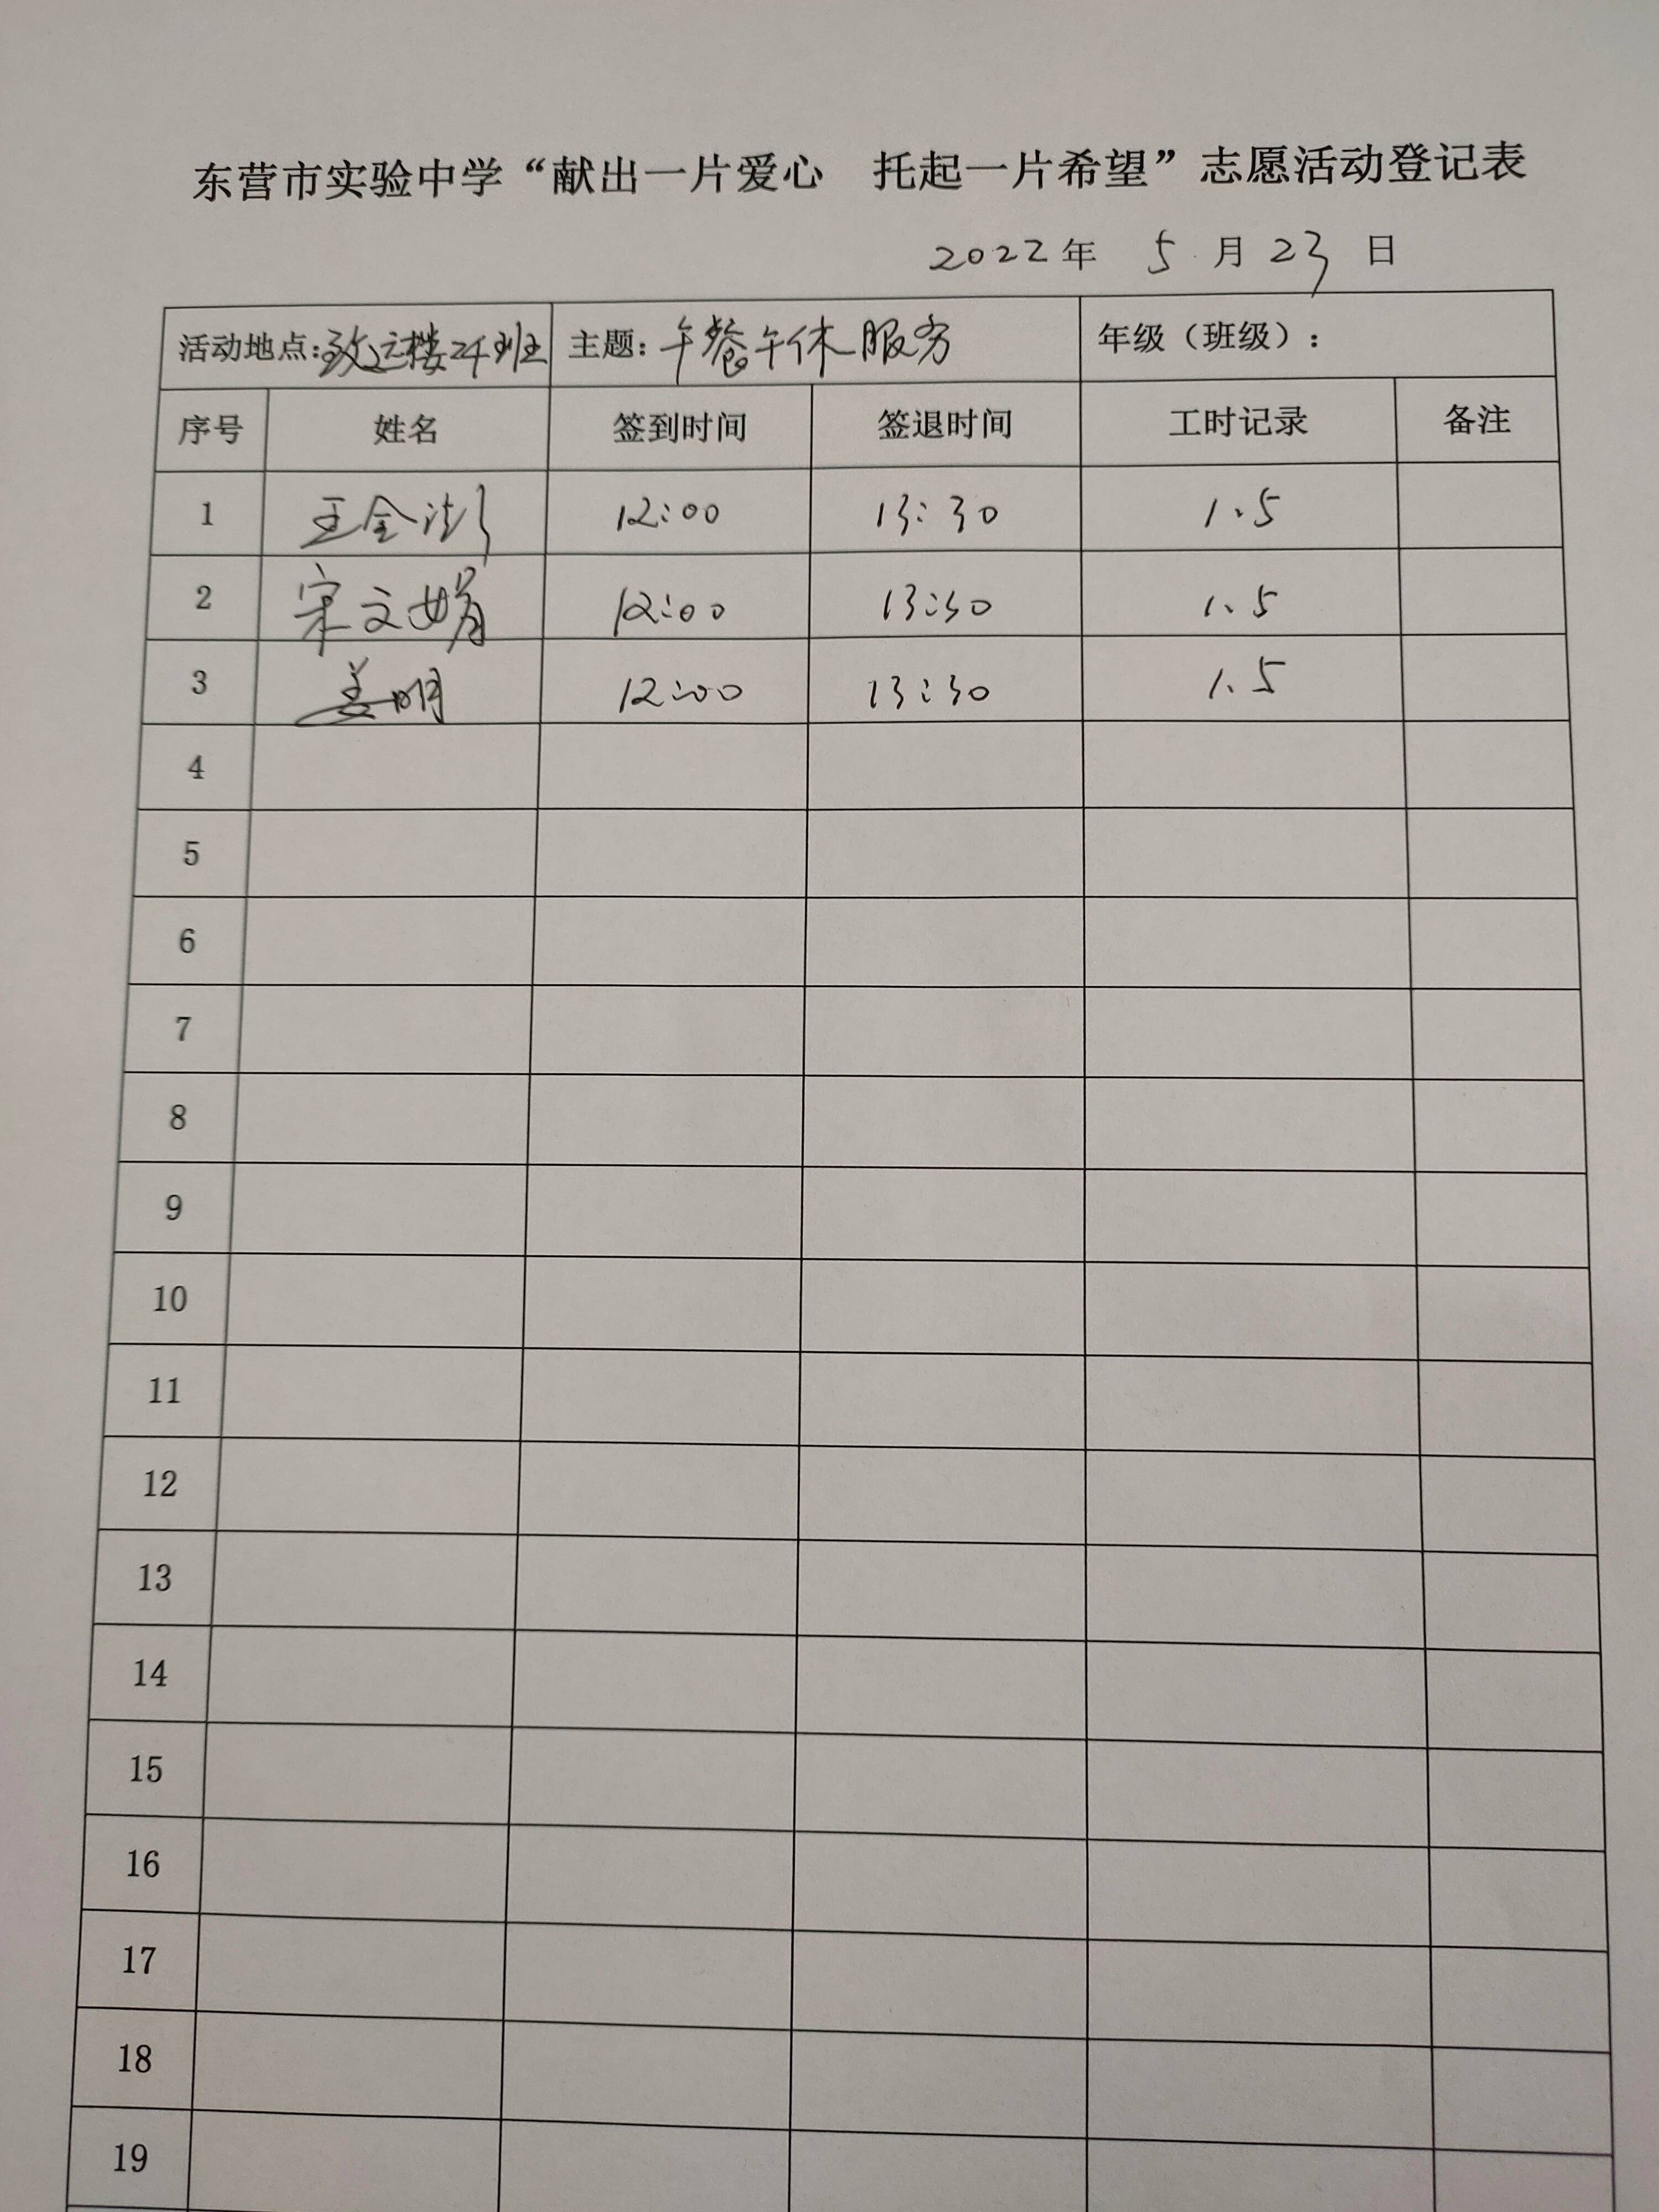 东营市实验中学“献出一片爱心 托起一片希望”志愿活动登记表
2022年 5月23日
活动地点:致远楼24班 主题:午餐午休服务 年级（班级）:
序号 姓名 签到时间 签退时间 工时记录 备注
1 王金 12:00 13:30 1.5
2 宋文娟 12:00 13:30 1.5
3 姜明 12:00 13:30 1.5
4
5
6
7
8
9
10
11
12
13
14
15
16
17
18
19